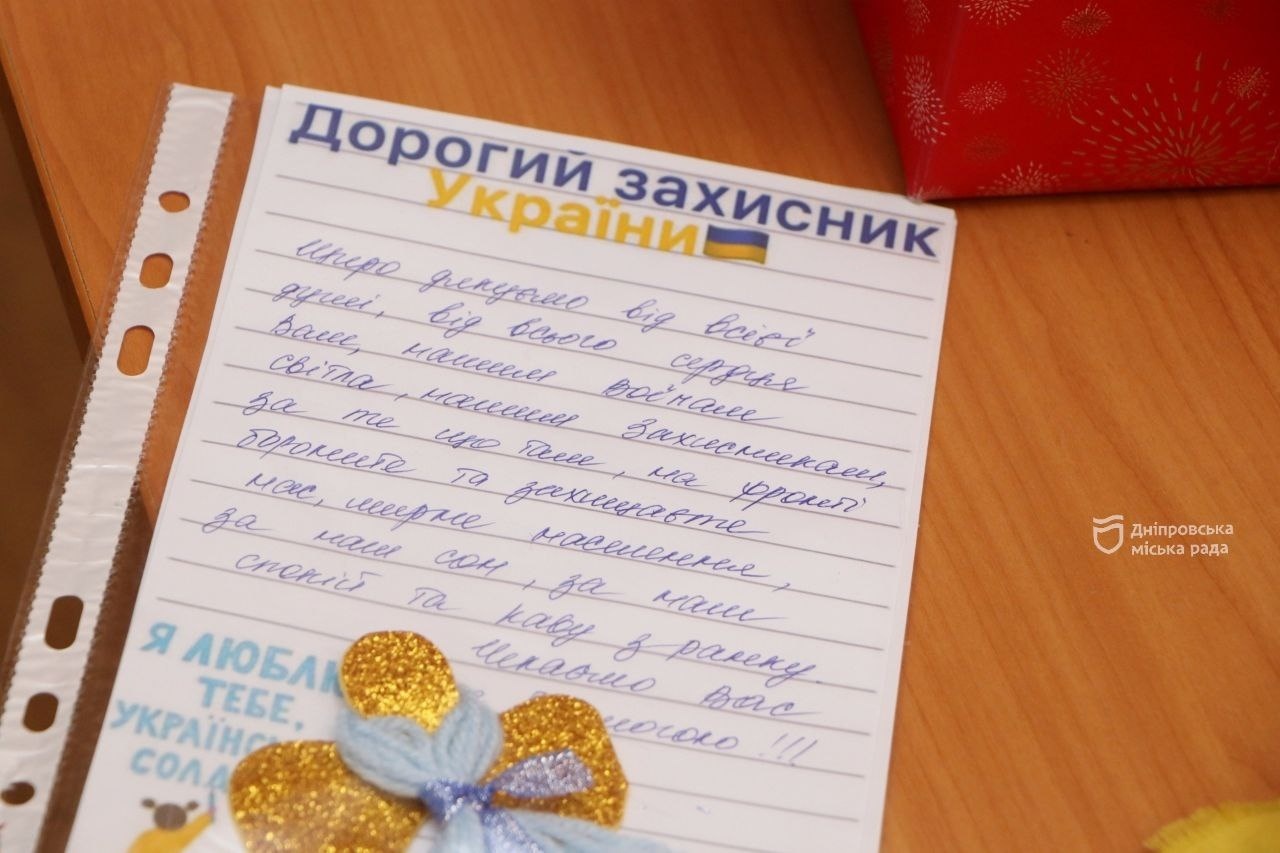 Дорогий захисник
України
Щиро дякуємо від всієї
душі, від всього серця
Вам, нашим воїнам
світла, нашим захисникам,
за те що там, на фронті
бороните та захищаєте
нас, мирне населення,
за наш сон, за наш
спокій та каву з ранку.
Чекаємо Вас
Я ЛЮБЛЮ
ТЕБЕ,
Дніпровська
міська рада